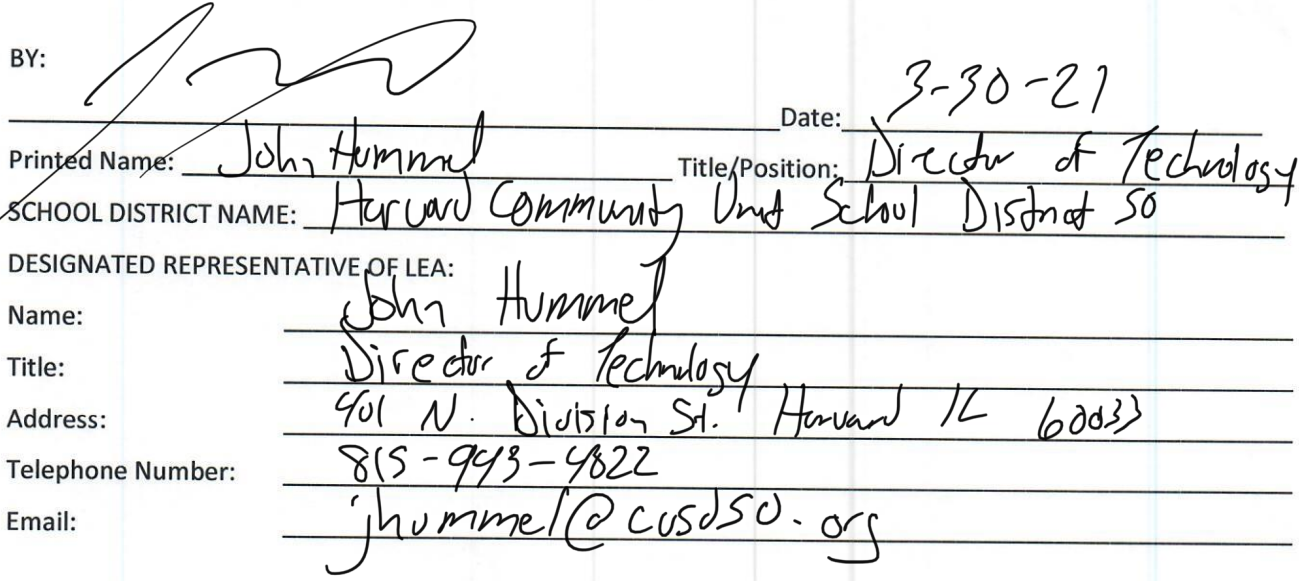 BY:
Date: 3-30-21
Printed Name: John Hummel Title/Position: Director of Technology
SCHOOL DISTRICT NAME: Harvard Community Unit School District 50
DESIGNATED REPRESENTATIVE OF LEA:
Name: John Hummel
Title: Director of Technology
Address: 401 N. Division St. Harvard IL 60033
Telephone Number: 815-943-4822
Email: jhummel@cusd50.org